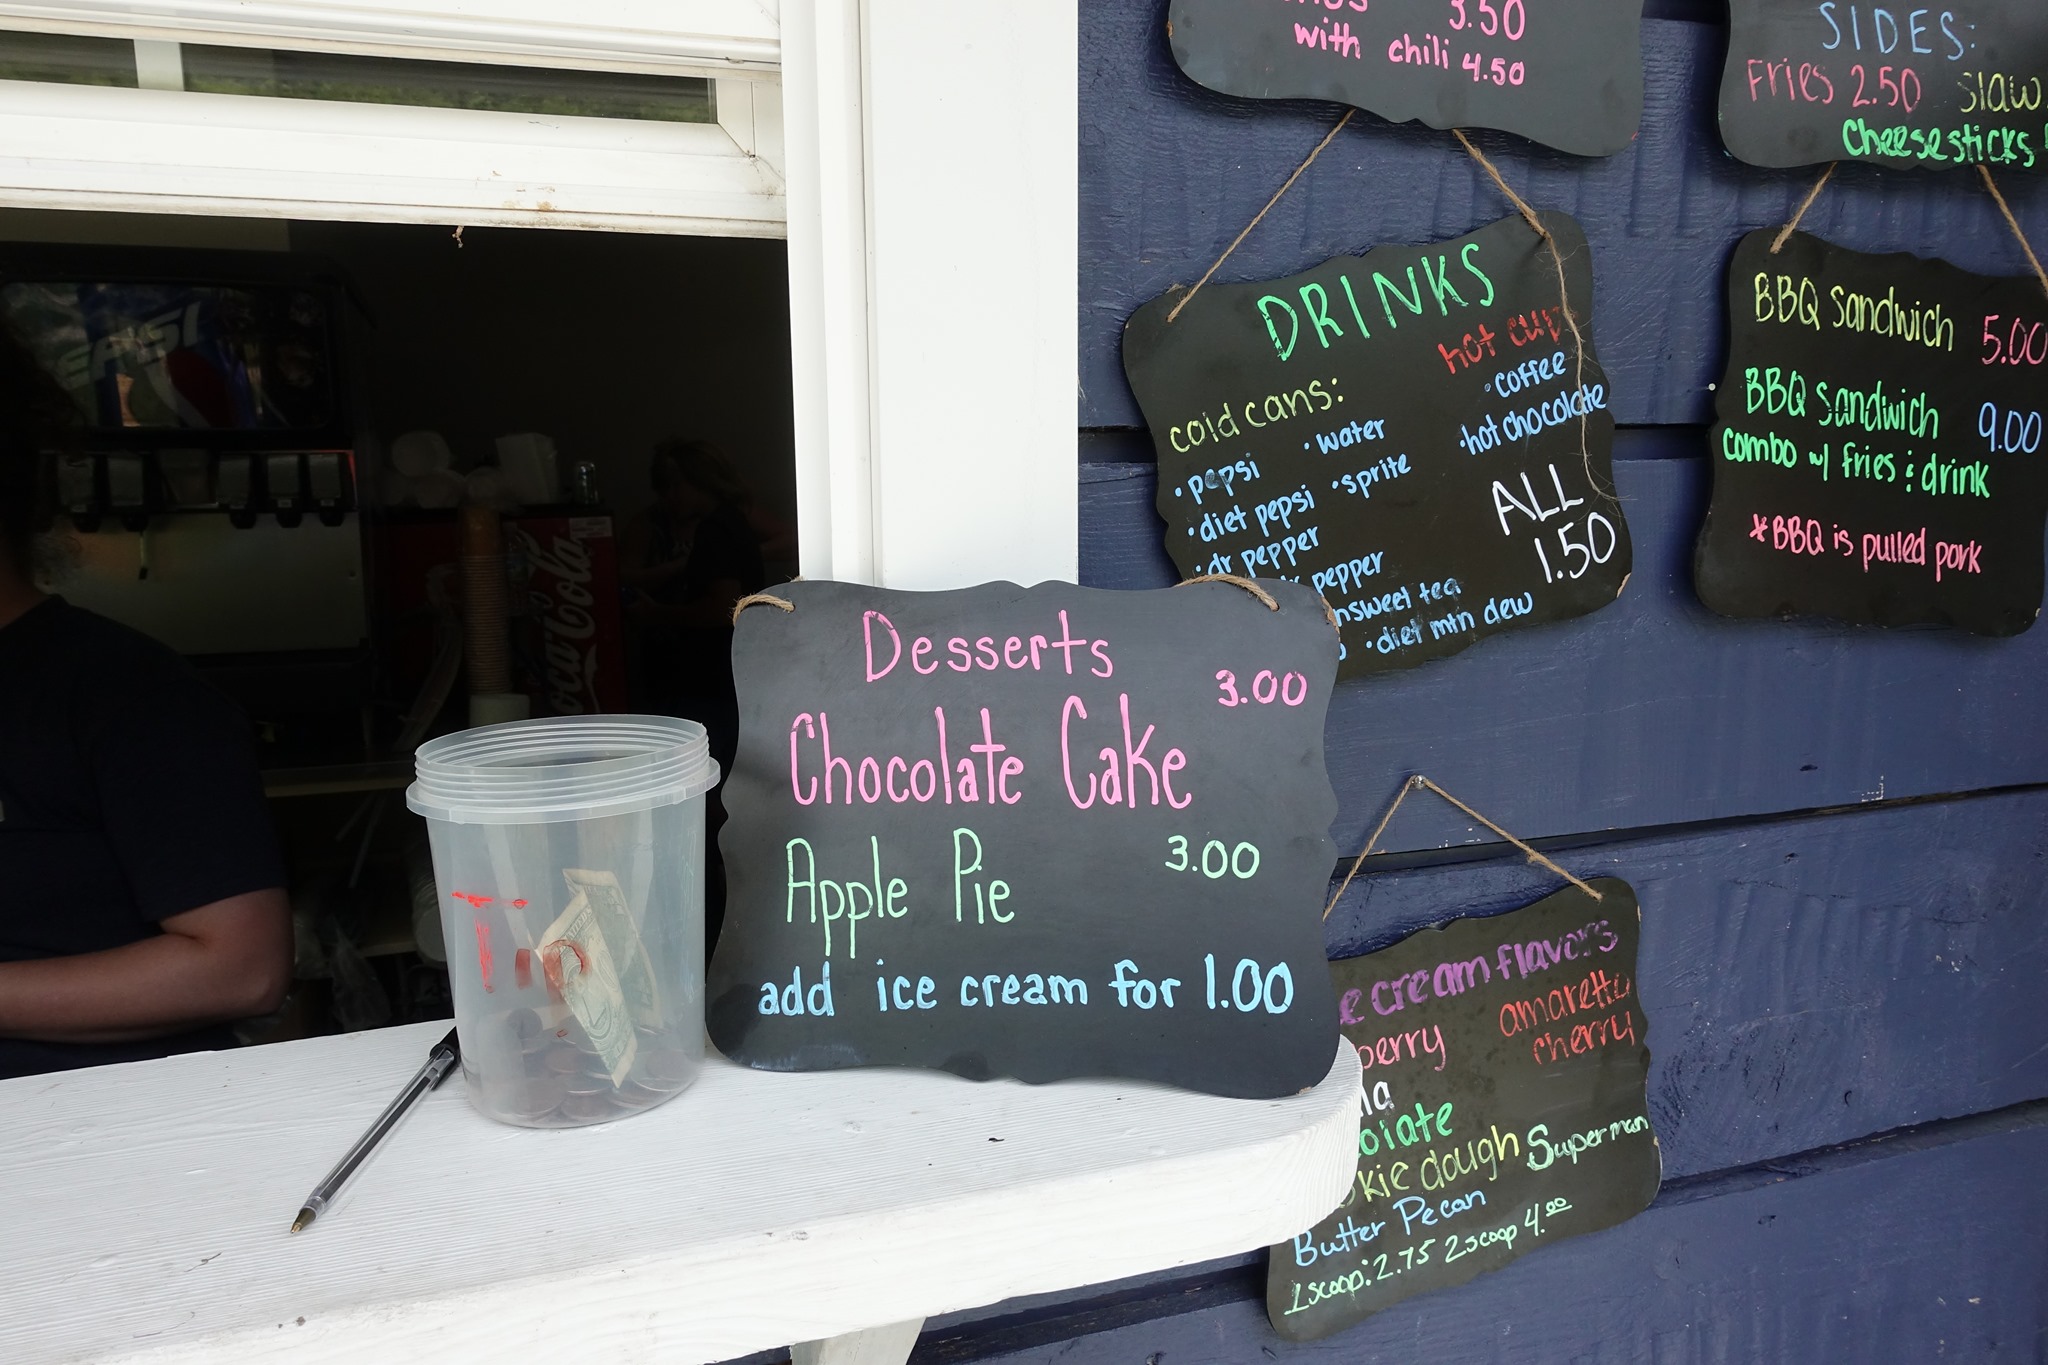 3.50
with chili 4.50
SIDES:
Fries 2.50 Slaw
Cheesesticks
DRINKS
hot cup
• coffee
• hot chocolate
cold cans:
• pepsi
• water
• diet pepsi
• sprite
• dr pepper
pepper
tea
• diet mtn dew
ALL
1.50
BBQ Sandwich 5.00
BBQ Sandwich 9.00
combo w/ fries & drink
*BBQ is pulled pork
Desserts
Chocolate Cake 3.00
Apple Pie 3.00
add ice cream for 1.00
cream flavors
amaretto
cherry
dough
Superman
Butter Pecan
1 scoop: 2.75 2 scoop 4.00
Tip
PEPSI
Coca-Cola